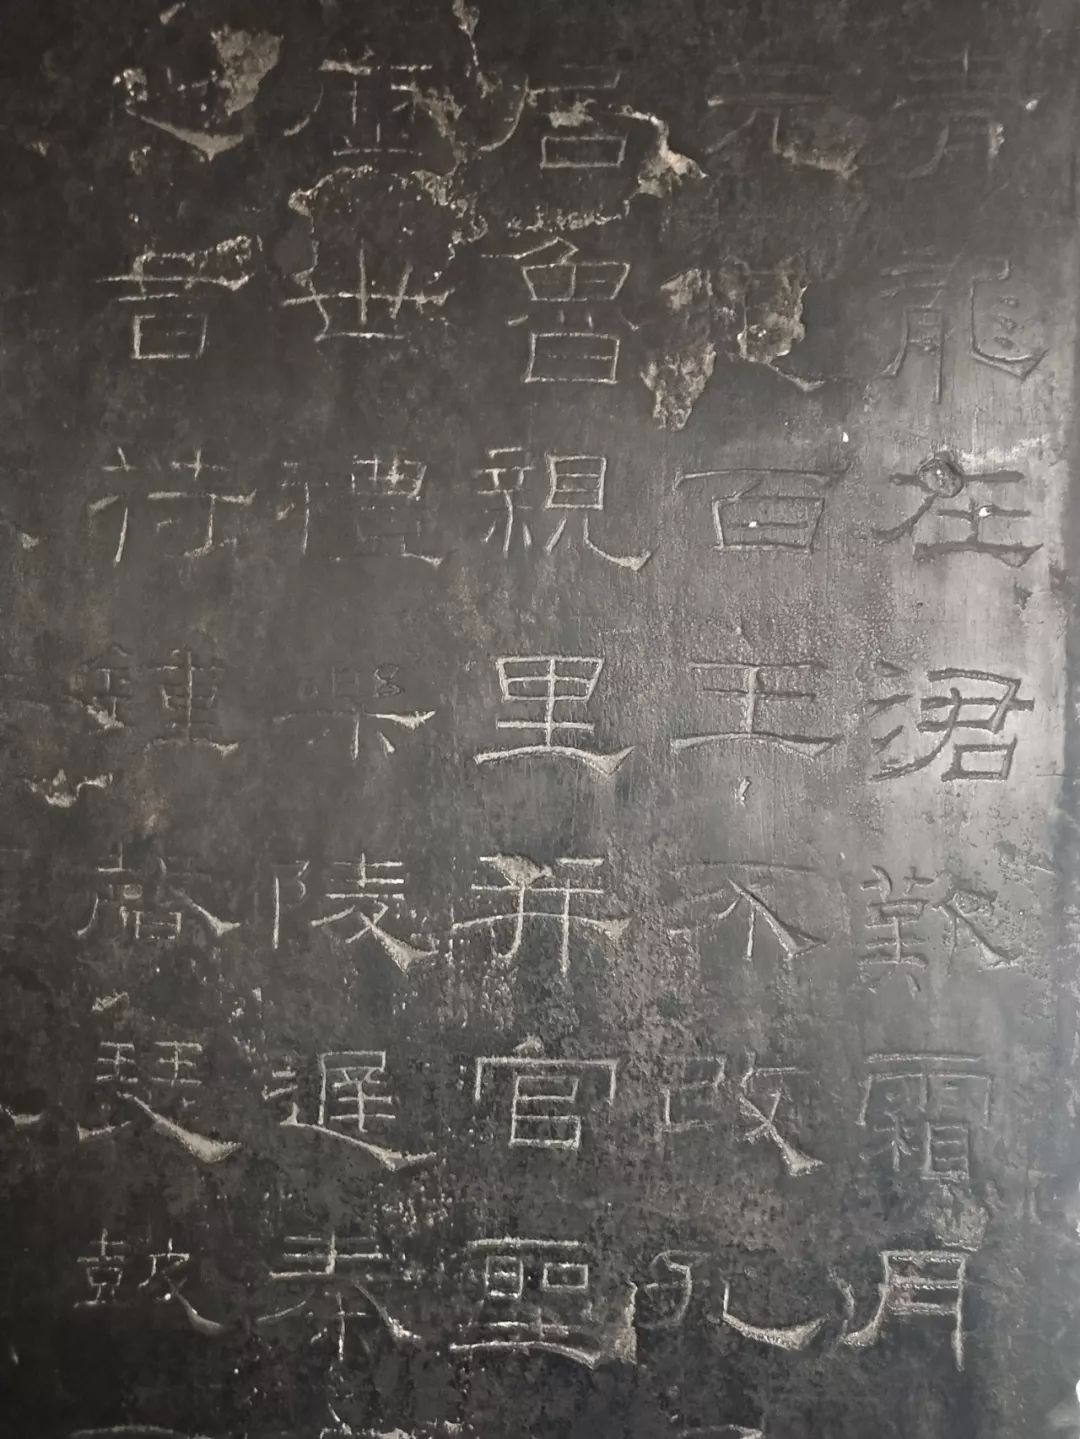 青龍在涒歎霜月
元道百王不改孔
居魯親里并官聖
歷世禮樂陵遲秦
之音符鍾磬瑟鼓